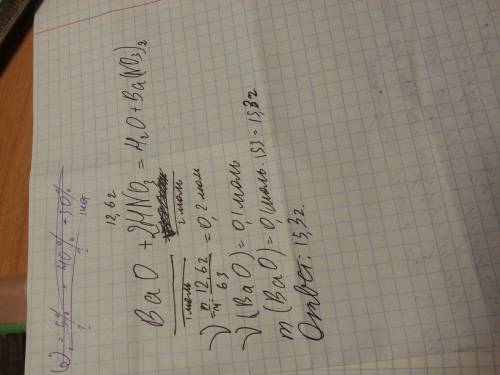 12,6г
BaO + 2HNO₃ = H₂O + Ba(NO₃)₂
1моль 2 моль
ν = 12,6г / 63 = 0,2 мол
ν(BaO) = 0,1 моль
m (BaO) = 0,1моль · 153 = 15,3г
Ответ: 15,3г.